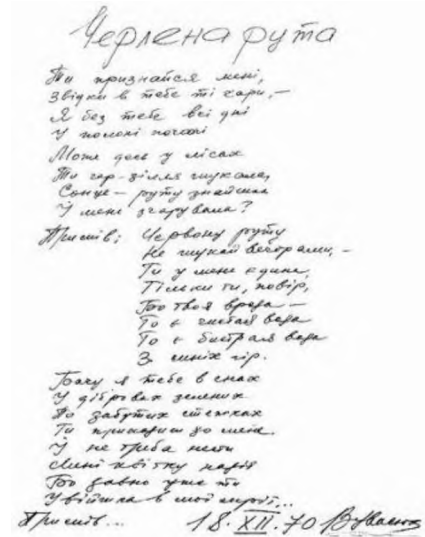 Черлена рута
Ти признайся мені,
Звідки в тебе ті чари,—
Я без тебе всі дні
У полоні печалі
Може десь у лісах
Ти чар-зілля шукала,
Сонце—руту знайшла
І мене зчарувала?
Приспів: Червону руту
Не шукай вечорами,—
Ти у мене єдина,
Тільки ти, повір,
Бо твоя врода —
То є чистая вода
То є бистрая вода
З синіх гір.
Бачу я тебе в снах
У дібровах зелених
По забутих стежках
Ти приходиш до мене.
І не треба нести
Мені квітку надій
Бо давно уже ти
Увійшла в мої мрії...
Приспів...
18.XII.70